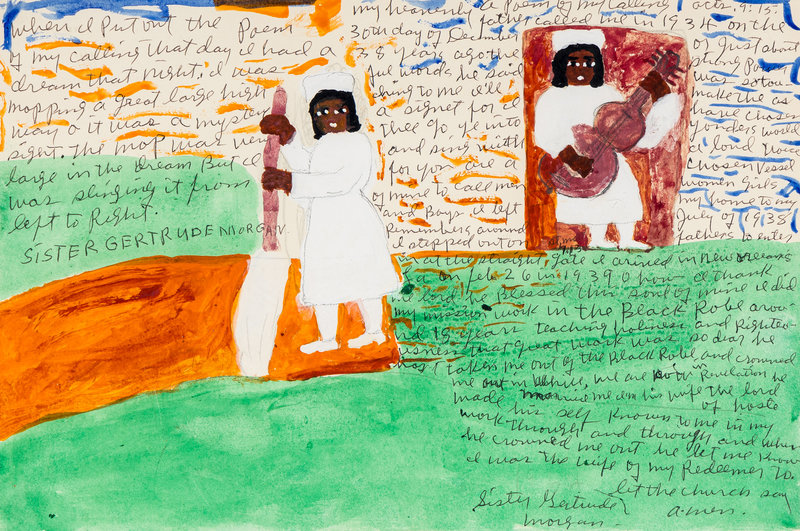 when I Put out the Poem
of my calling that day i had a
dream that night, i was
mopping a great large high
way o it was a mystery
sight. the mop was very
large in the dream But i
was slinging it from
left to Right.
SISTER GERTRUDE MORGAN.
my heavenly a Poem of my Calling acts 9:15
father called me in 1934 on the
30th day of December
38 years ago the of Just about
Jue words he said strong Poem
thing to me i'll was so tou
a signet for i make the as
thee go ye into have chosen
and sing with yonders world
for you are a a loud voice
of mine to call men chosen Vessel
and Boys i left women girls
Remembers around my home to my
I stepped out on July of 1938
fathers to enter
in at the straight gate i arived in New orleans
on feb 26 in 1939 O how I thank
the lord he Blessed this soul of mine i did
my mission work in the Black Robe arou
nd 15 years teaching holiness and Righteo
usness that great work was so dear he
has taken me out of the Black Robe and crowned
me out in white, we are now in Revelation he
made me his wife the lord
work through and through and when
his self known to me in my
he crowned me out he let me know
I was the wife of my Redeemer to.
let the church say
a.men.
Sister Gertrude
Morgan